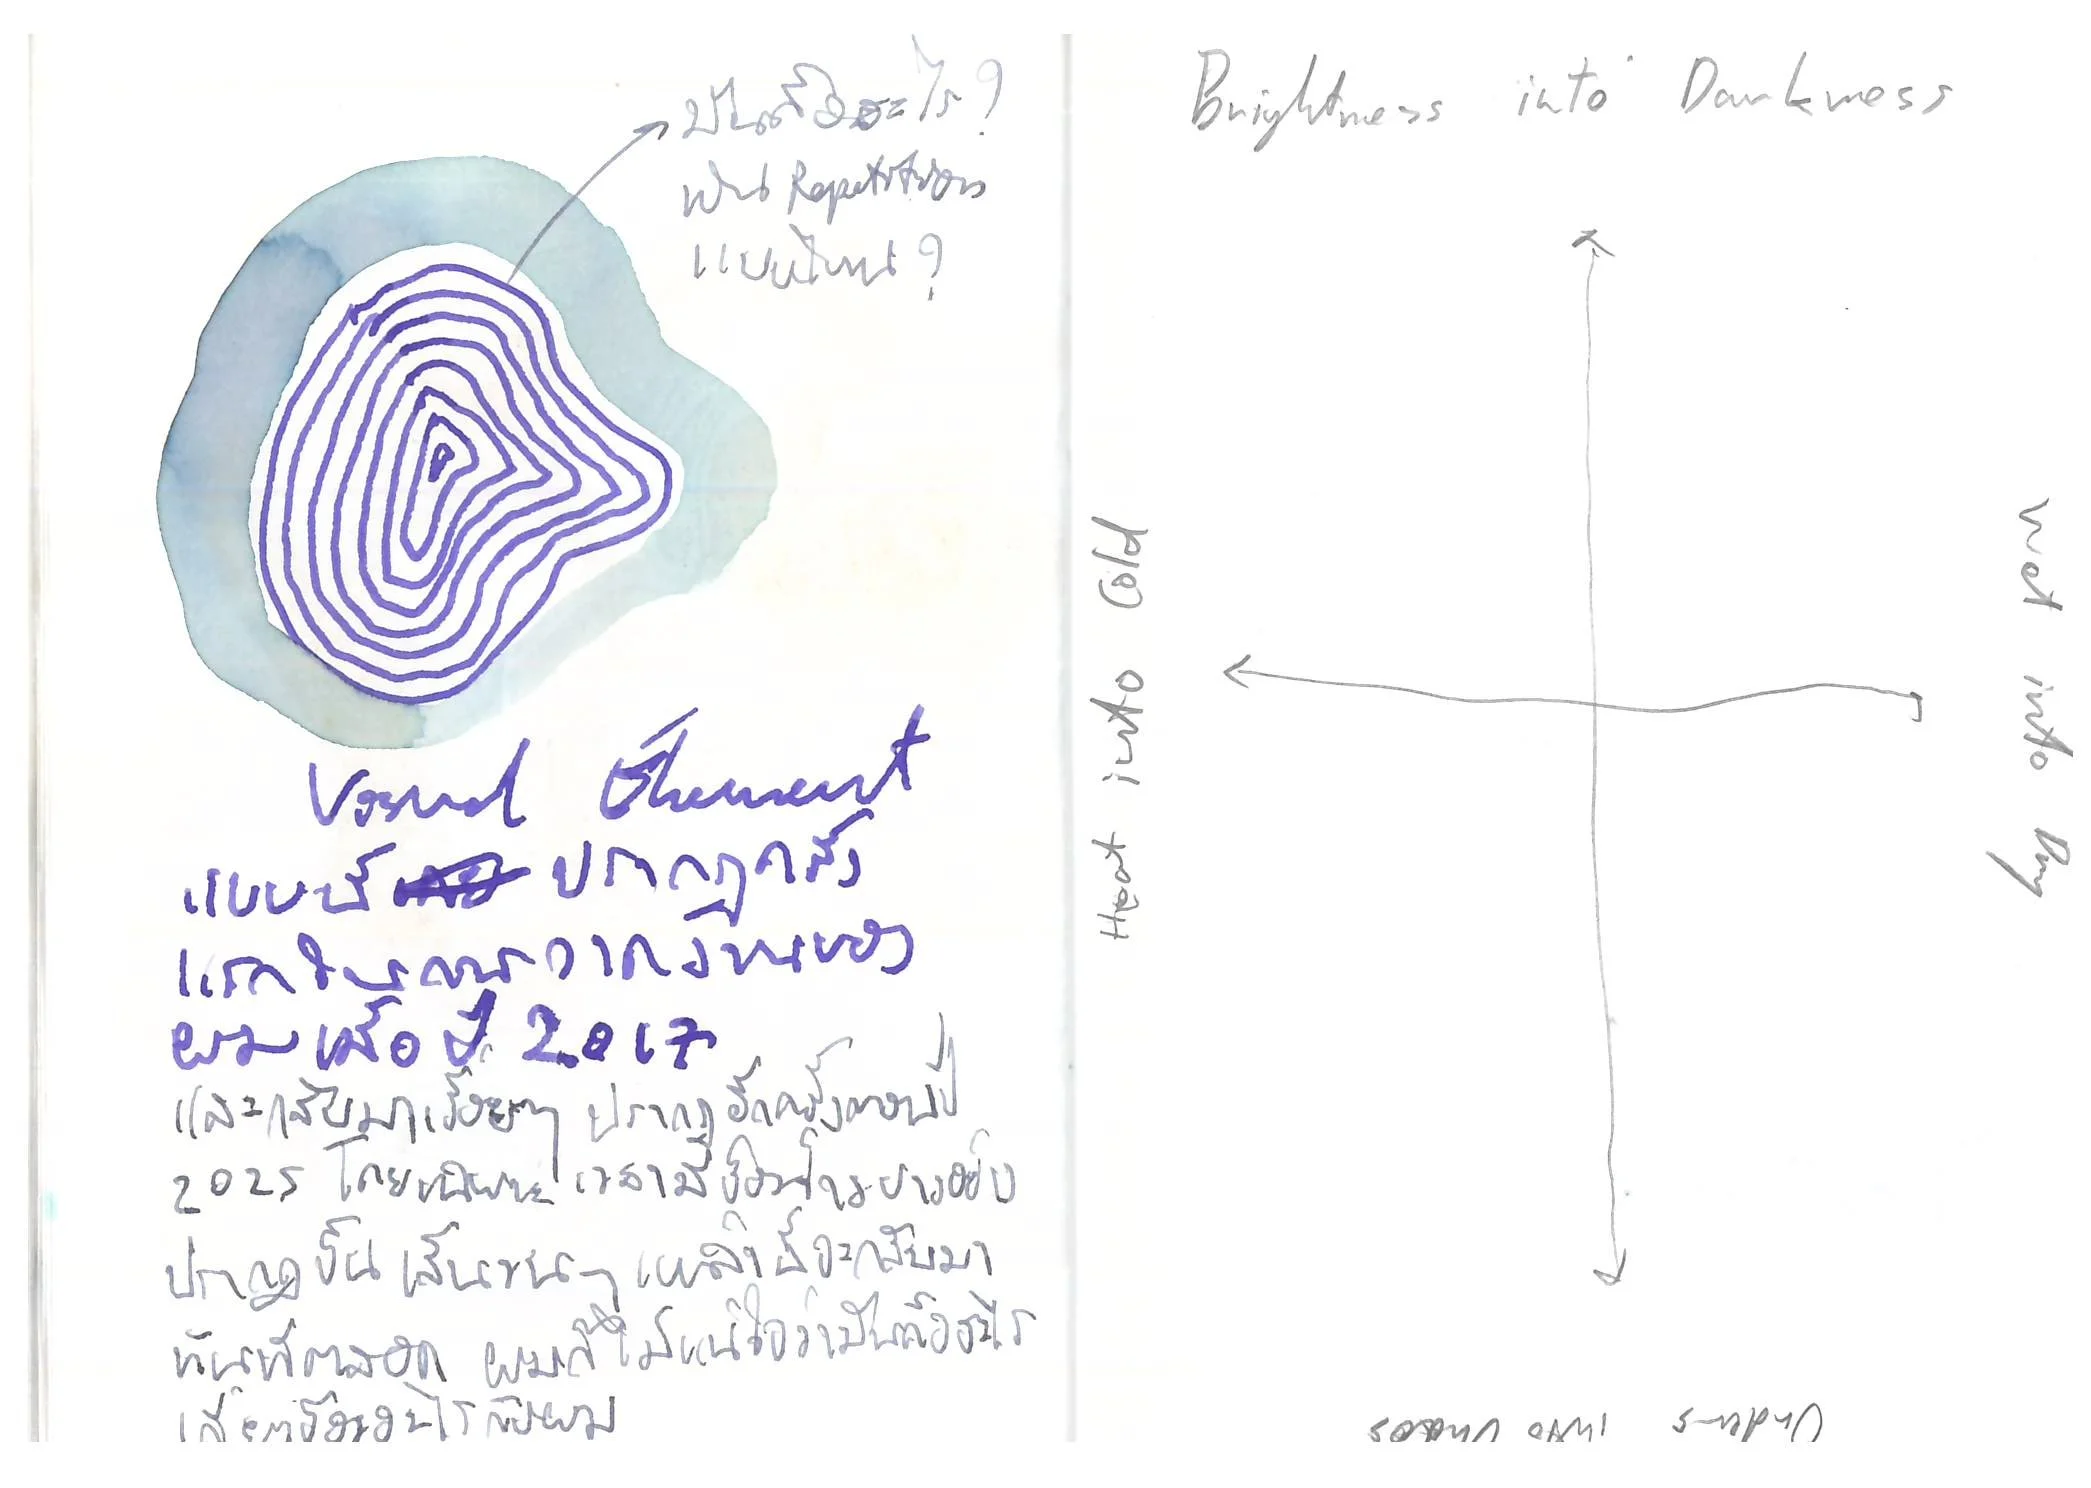 มันคืออะไร?
เป็น Repetition
แบบไหน?
Visual Element
แบบนี้ ปรากฏครั้ง
แรกในการวาดงานของ
ผมเมื่อ ปี 2017
และกลับมาเรื่อยๆ ปรากฏอีกครั้งตอนปี
2025 โดยเฉพาะ เวลามี
ปรากฏขึ้น เส้นขนๆ เหล่านี้จะกลับมา
ทันทีตลอด ผมก็ไม่แน่ใจว่ามันคืออะไร
Brightness into Darkness
Heat into Cold
Wet into Dry
into